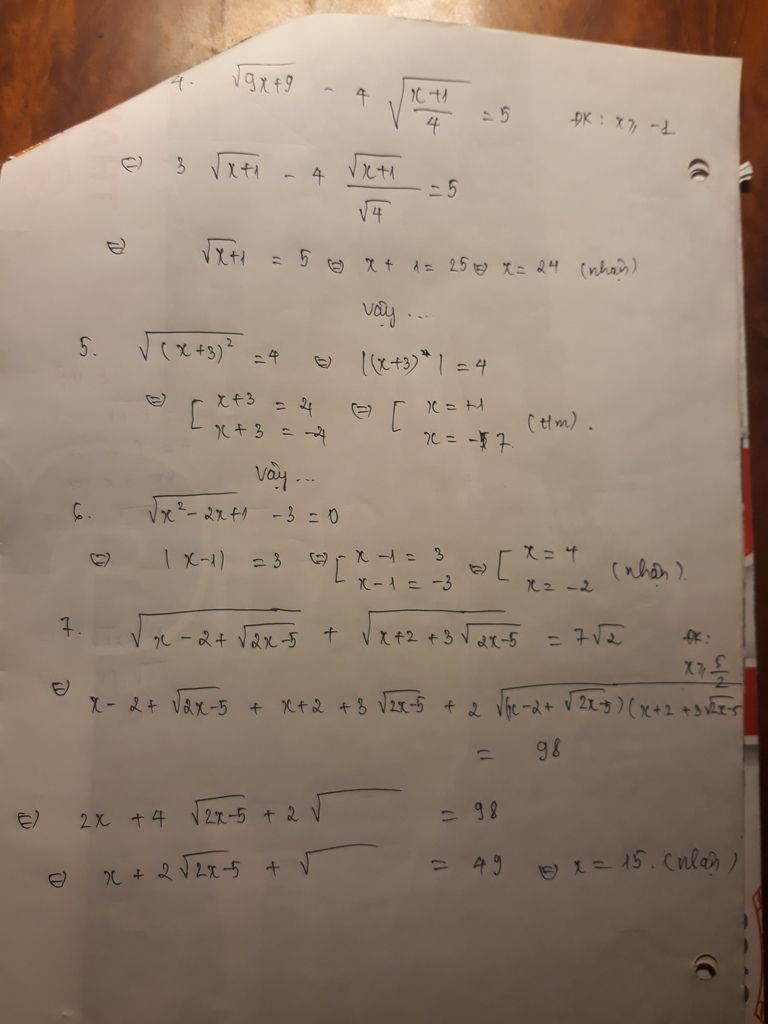 4. √(9x+9) - 4 √((x+1)/4) = 5 ĐK: x ≥ -1
⇔ 3 √(x+1) - 4 √(x+1)/√4 = 5
⇔ √(x+1) = 5 ⇔ x + 1 = 25 ⇔ x = 24 (nhận)
Vậy ...
5. √((x+3)²) = 4 ⇔ |(x+3)| = 4
⇔ [ x+3 = 4 ⇔ [ x = +1
x+3 = -4 x = -7 (t/m).
Vậy ...
6. √(x² - 2x+1) - 3 = 0
⇔ |x-1| = 3 ⇔ [ x-1 = 3 ⇔ [ x = 4
x-1 = -3 x = -2 (nhận).
7. √(x - 2 + √(2x-5)) + √(x+2 + 3√(2x-5)) = 7√2 ĐK:
x ≥ 5/2
⇔ x - 2 + √(2x-5) + x+2 + 3√(2x-5) + 2 √((x-2 + √(2x-5))(x+2 + 3√(2x-5)
= 98
⇔ 2x + 4 √(2x-5) + 2 √ = 98
⇔ x + 2√(2x-5) + √ = 49 ⇔ x = 15. (nhận)